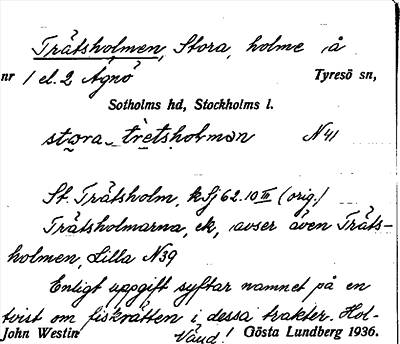 Trätsholmen, Stora, holme å
nr 1 el. 2 Ägnö Tyresö sn,
Sotholms hd, Stockholms l.
stora tretshoļmən N 41
St. Trätsholm, k Sj 62. 10 III (orig.)
Trätsholmarna, ek, avser även Träts-
holmen, Lilla N 39
Enligt uppgift syftar namnet på en
tvist om fiskrätten i dessa trakter. Hol-
John Westin Vänd! Gösta Lundberg 1936.